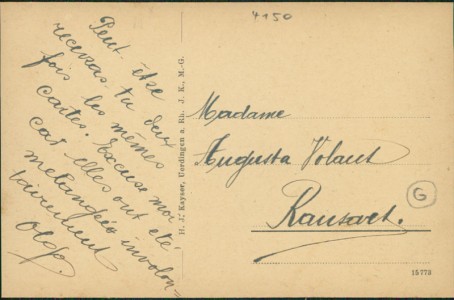 4150
Peut-être
recevras-tu deux
fois les mêmes
cartes. Excuse moi
car elles ont été
mélangées involon-
tairement
H. J. Kayser, Uerdingen a. Rh. J. K., M.-G.
Madame
Augusta Volant
Ransart.
G
15773